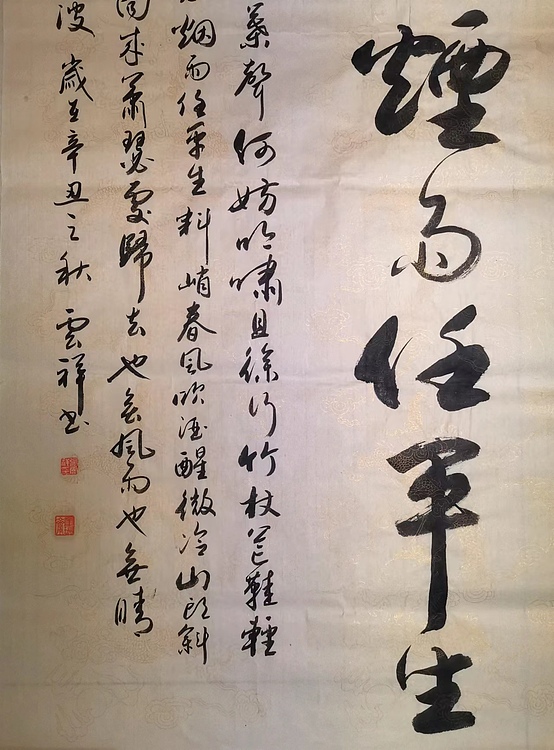 煙雨任平生
葉聲何妨吟嘯且徐行竹杖芒鞋輕
烟雨任平生料峭春風吹酒醒微冷山頭斜
向来蕭瑟處歸去也無風雨也無晴
波 歲在辛丑之秋 雲祥书